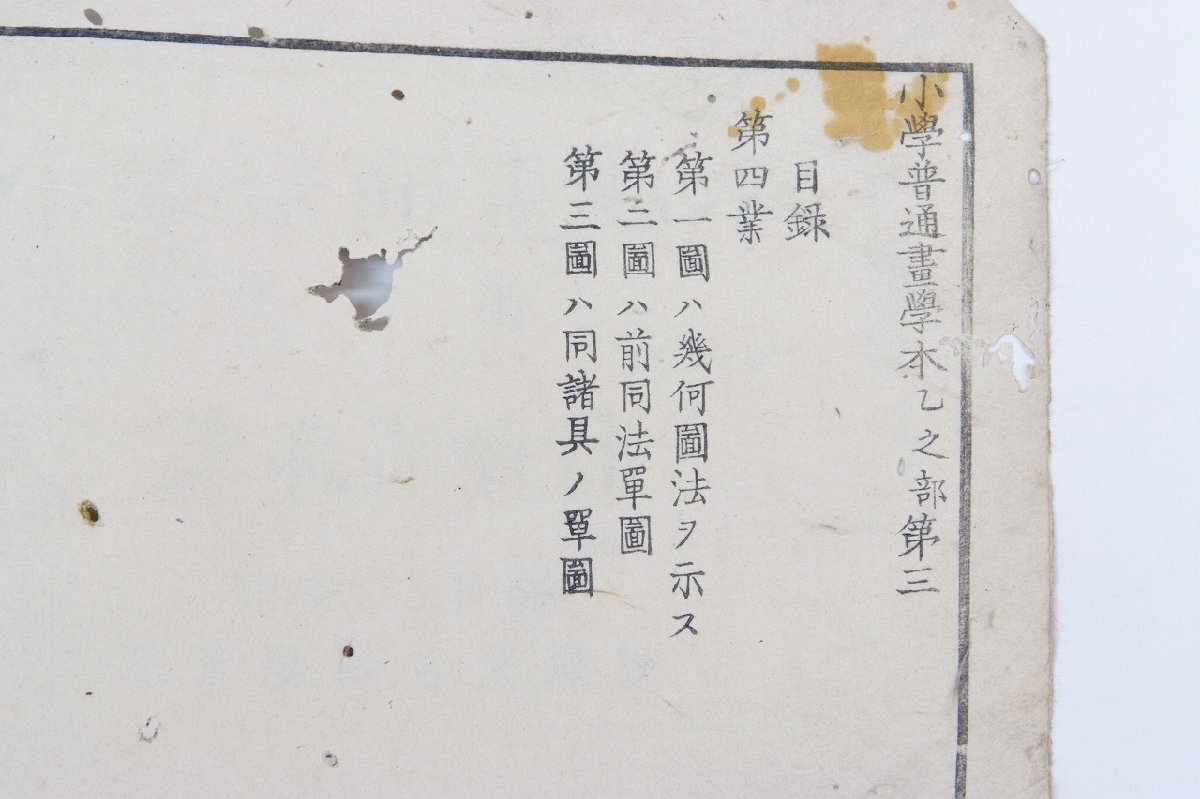 小學普通畫學本乙之部第三
目錄
第四業
第一圖ハ幾何圖法ヲ示ス
第二圖ハ前同法單圖
第三圖ハ同諸具ノ單圖